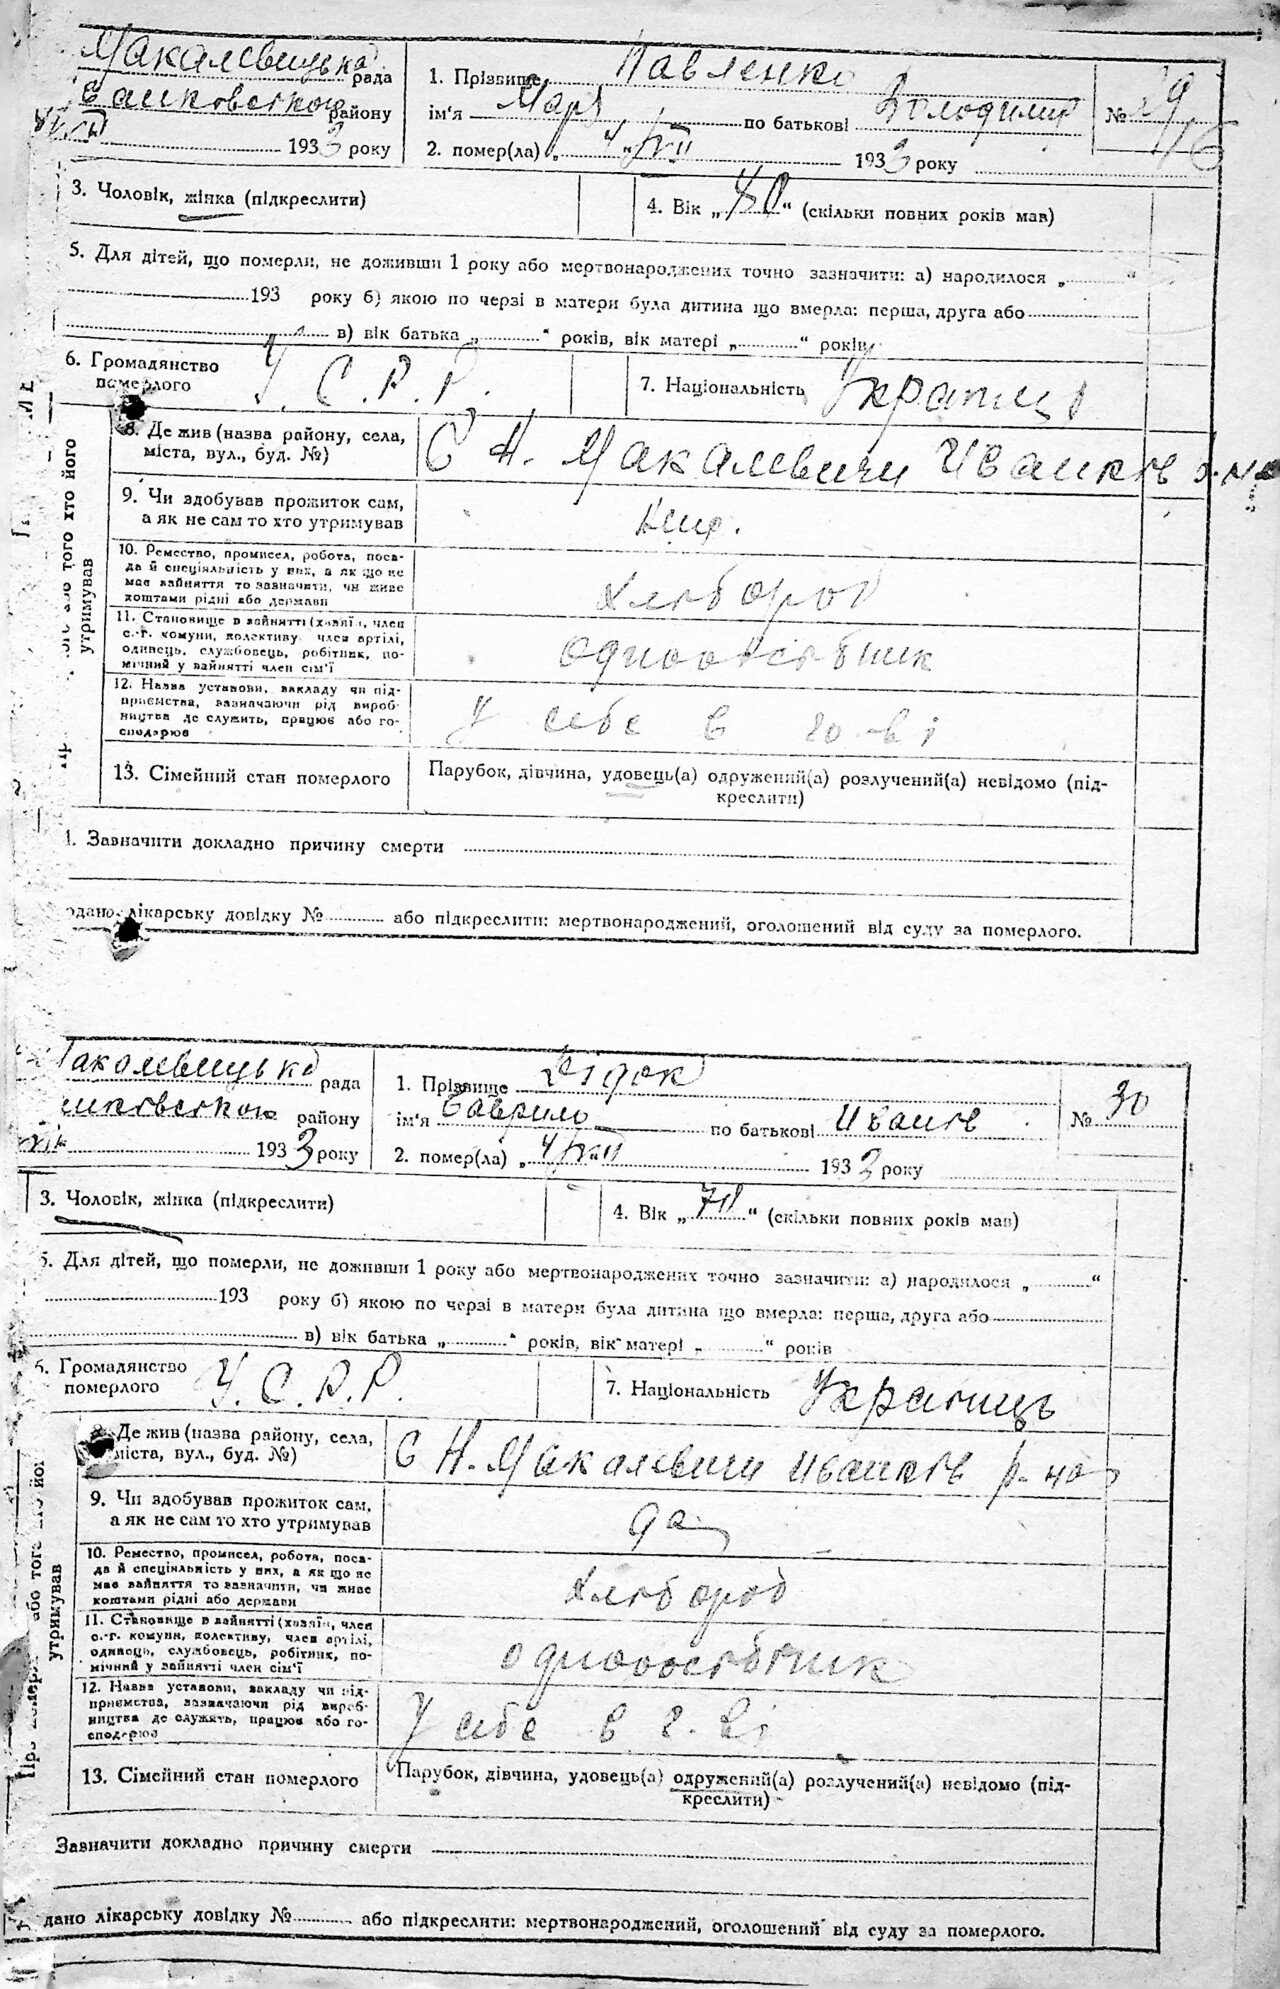 Макалевицька рада
Іванковського району
193 3 року
1. Прізвище Павленко
ім'я Мар по батькові Володимир
№ 29
2. помер(ла) „ 4 „ VII 193 3 року
3. Чоловік, жінка (підкреслити)
4. Вік „ 40 “ (скільки повних років мав)
5. Для дітей, що померли, не доживши 1 року або мертвонароджених точно зазначити: а) народилося „ “
193 року б) якою по черзі в матери була дитина що вмерла: перша, друга або
в) вік батька „ “ років, вік матері „ “ років
6. Громадянство
померлого
У. С. Р. Р.
7. Національність
8. Де жив (назва району, села,
міста, вул., буд. №)
С Н. Макалевичи Иванків р-на
9. Чи здобував прожиток сам,
а як не сам то хто утримував
10. Ремество, промисел, робота, поса-
да й спеціяльність у них, а як що не
має зайняття то зазначити, чи живе
коштами рідні або держави
хлібороб
11. Становище в зайнятті (хазяїн, член
с.-г. комуни, колективу, член артілі,
одинець, службовець, робітник, по-
мічний у зайнятті член сім'ї
одноосібник
12. Назва установи, закладу чи під-
приємства, зазначаючи рід вироб-
ництва де служить, працює або го-
сподарює
у себе в
13. Сімейний стан померлого
Парубок, дівчина, удовець(а) одружений(а) розлучений(а) невідомо (під-
креслити)
Зазначити докладно причину смерти
лікарську довідку № або підкреслити: мертвонароджений, оголошений від суду за померлого.
Макалевицька рада
району
193 3 року
1. Прізвище Дідок
ім'я Гаврило по батькові Иванів
№ 30
2. помер(ла) „ 4 „ VII 193 3 року
3. Чоловік, жінка (підкреслити)
4. Вік „ 70 “ (скільки повних років мав)
5. Для дітей, що померли, не доживши 1 року або мертвонароджених точно зазначити: а) народилося „ “
193 року б) якою по черзі в матери була дитина що вмерла: перша, друга або
в) вік батька „ “ років, вік матері „ “ років
6. Громадянство
померлого
У. С. Р. Р.
7. Національність Украинець
8. Де жив (назва району, села,
міста, вул., буд. №)
С Н. Макалевичи Иванків р-на
9. Чи здобував прожиток сам,
а як не сам то хто утримував
да
10. Ремество, промисел, робота, поса-
да й спеціяльність у них, а як що не
має зайняття то зазначити, чи живе
коштами рідні або держави
хлібороб
11. Становище в зайнятті (хазяїн, член
с.-г. комуни, колективу, член артілі,
одинець, службовець, робітник, по-
мічний у зайнятті член сім'ї
одноосібник
12. Назва установи, закладу чи під-
приємства, зазначаючи рід вироб-
ництва де служить, працює або го-
сподарює
у себе в г-ві
13. Сімейний стан померлого
Парубок, дівчина, удовець(а) одружений(а) розлучений(а) невідомо (під-
креслити)
Зазначити докладно причину смерти
дано лікарську довідку № або підкреслити: мертвонароджений, оголошений від суду за померлого.